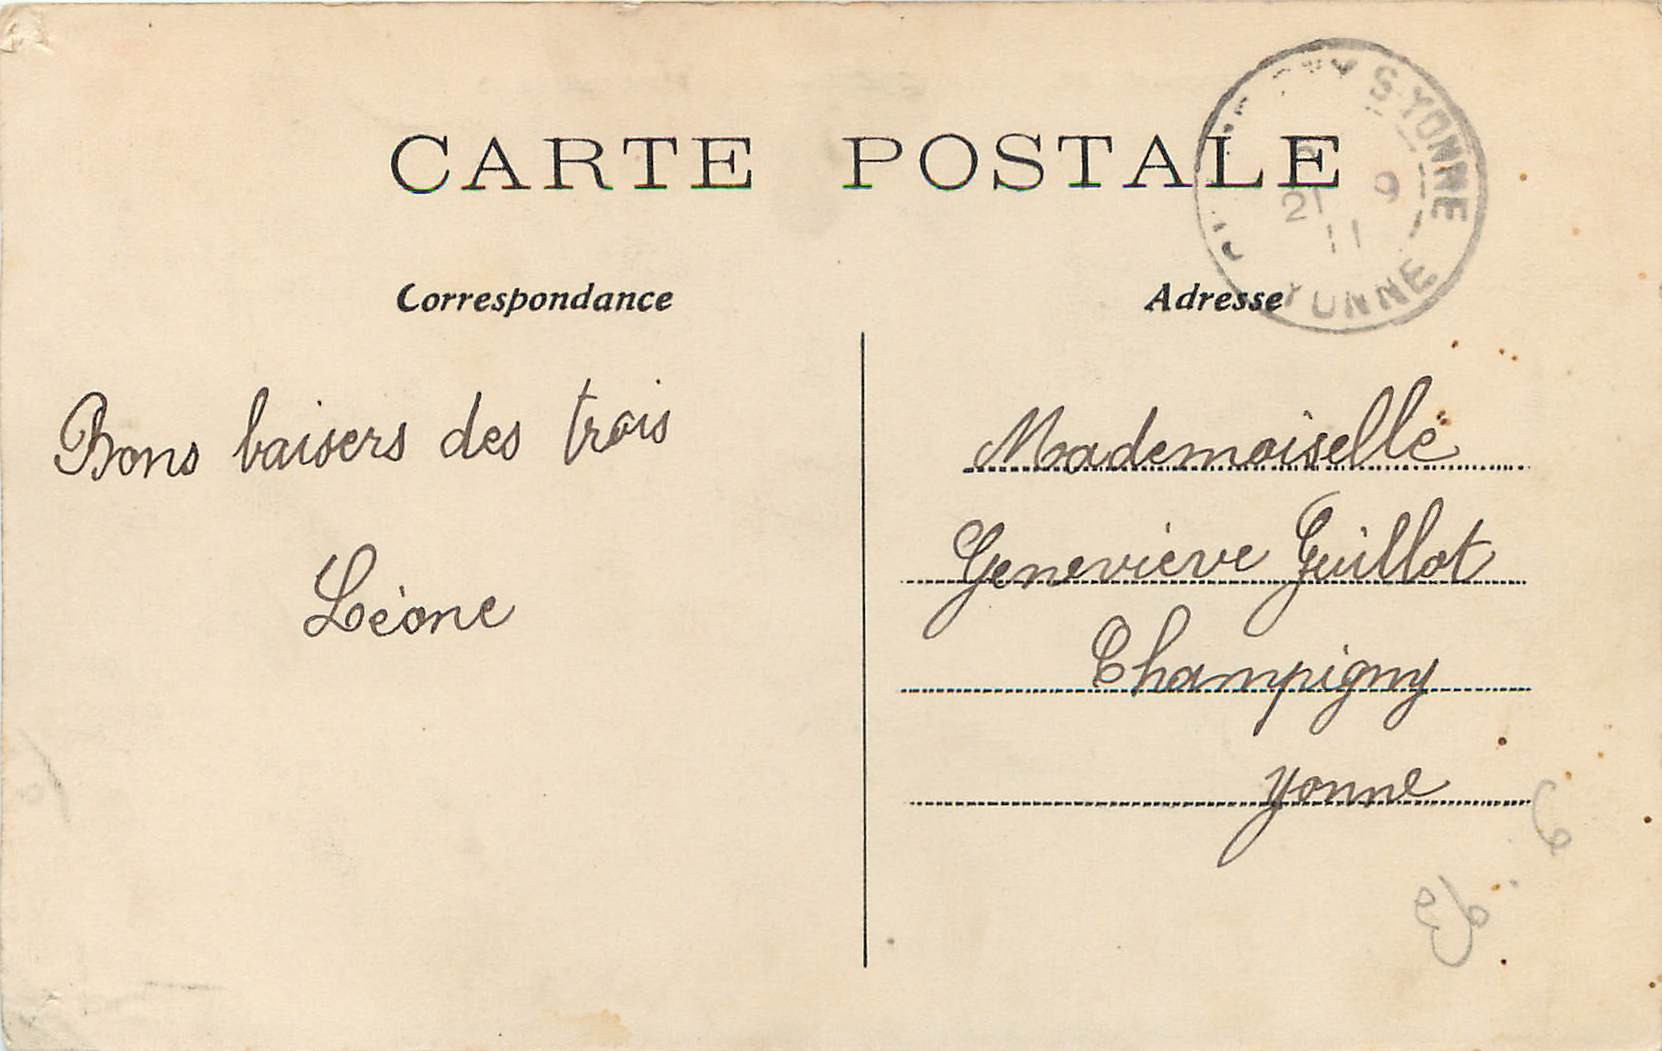 CARTE POSTALE
S-YONNE
21 9
11
YONNE
Correspondance
Adresse
Bons baisers des trois
Léone
Mademoiselle
Geneviève Guillot
Champigny
Yonne